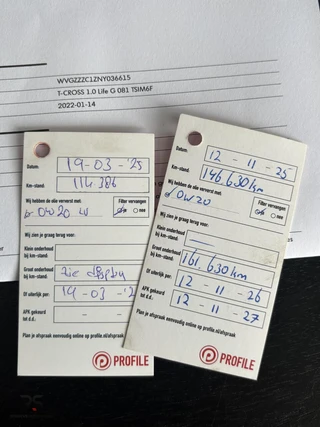 WVGZZZC1ZNY036615
T-CROSS 1.0 Life G 081 TSIM6F
2022-01-14
Datum: 19-03-'25
Km-stand: 114 386
Wij hebben de olie ververst met: Filter vervangen
0W20 ja nee
Wij zien je graag terug voor:
Klein onderhoud bij km-stand:
Groot onderhoud bij km-stand: Zie display
Of uiterlijk per: 19-03-'2
APK gekeurd tot d.d.: - -
Plan je afspraak eenvoudig online op profile.nl/afspraak
PROFILE
Datum: 12-11-25
Km-stand: 146 630 km
Wij hebben de olie ververst met: Filter vervangen
0W20 ja nee
Wij zien je graag terug voor:
Klein onderhoud bij km-stand: —
Groot onderhoud bij km-stand: 161.630 km
Of uiterlijk per: 12-11-26
APK gekeurd tot d.d.: 12-11-27
Plan je afspraak eenvoudig online op profile.nl/afspraak
PROFILE